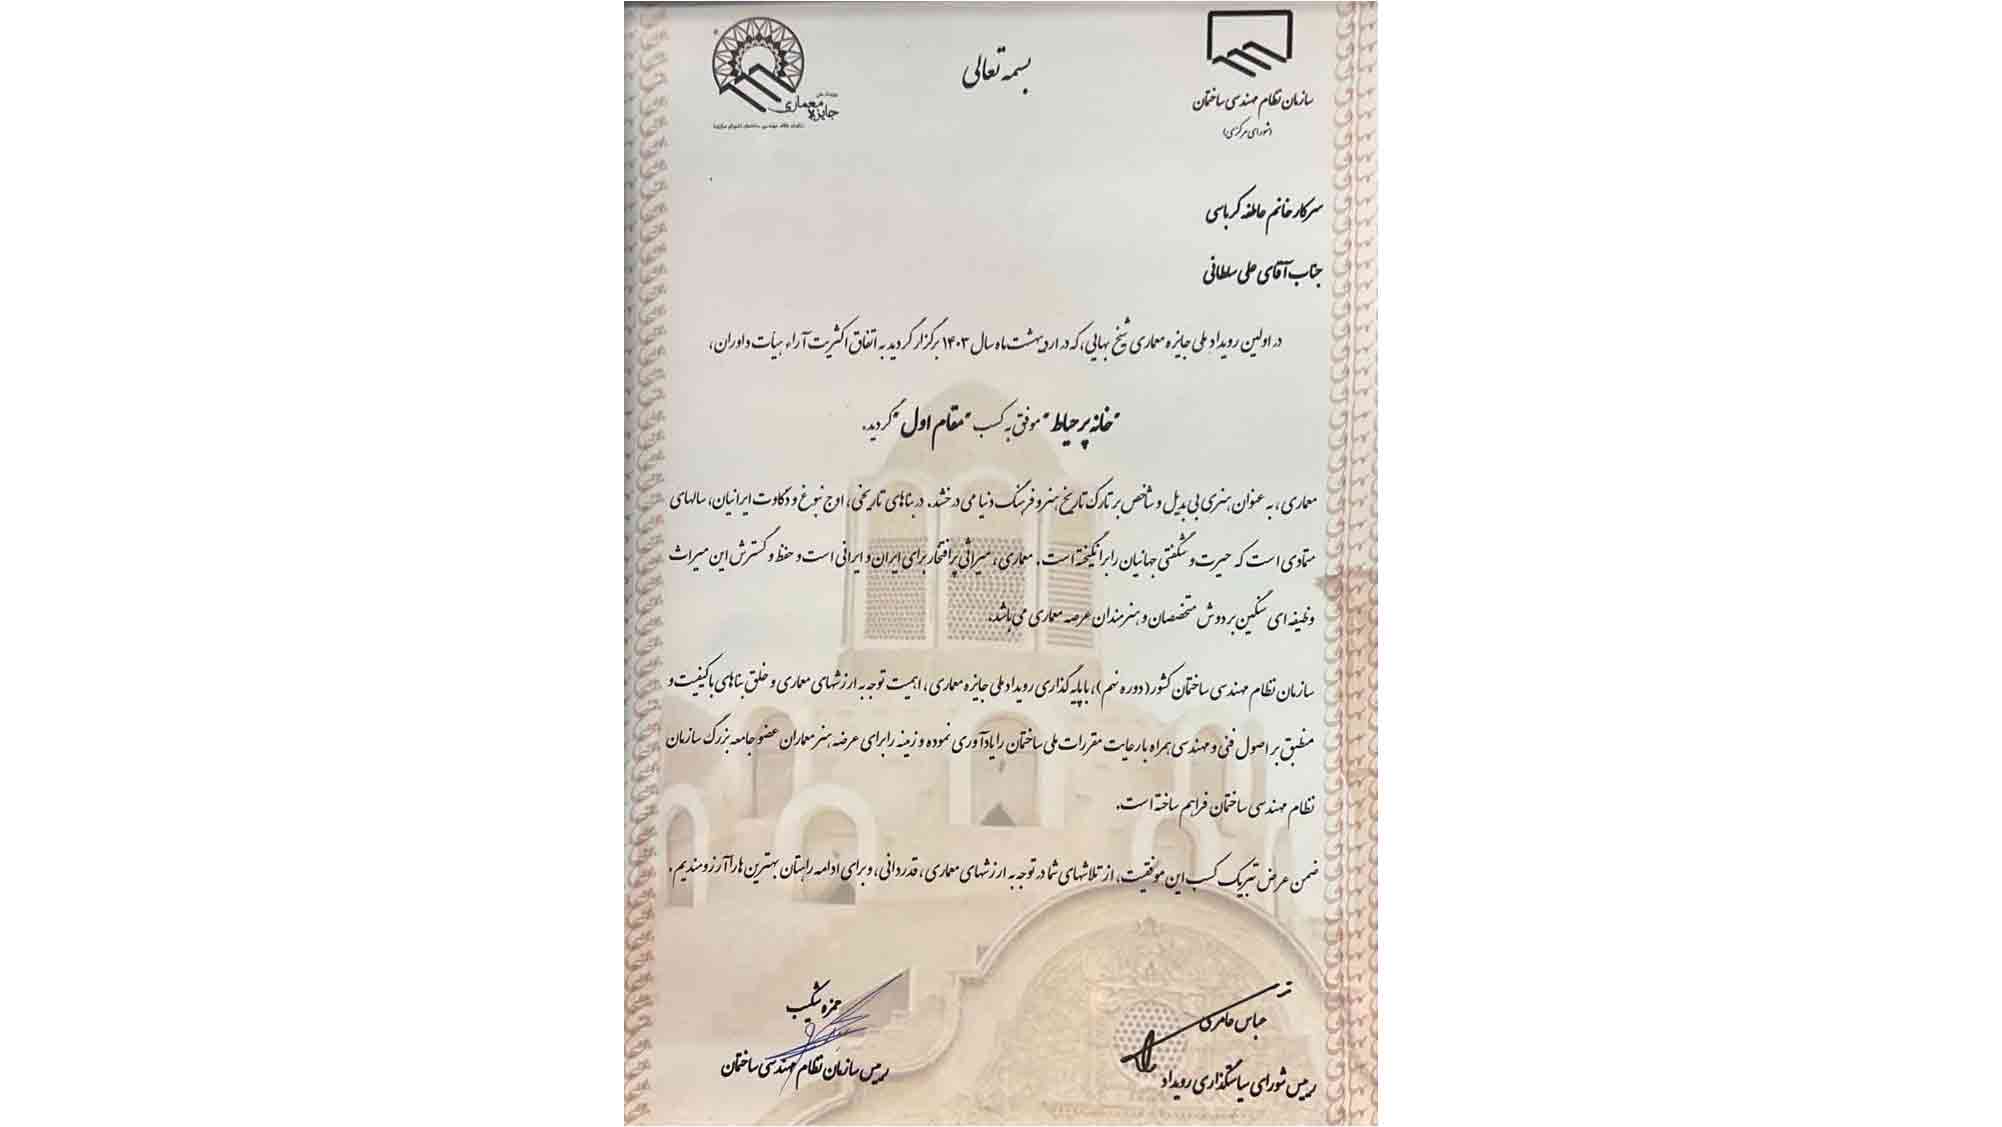 بسمه تعالی
سازمان نظام مهندسی ساختمان
(شورای مرکزی)
جایزه معماری
سرکار خانم عاطفه کرباسی
جناب آقای علی سلطانی
در اولین رویداد ملی جایزه معماری شیخ بهایی، که در اردیبهشت ماه سال ۱۴۰۳ برگزار گردید به اتفاق اکثریت آراء هیأت داوران،
"خانه پر حیاط" موفق به کسب "مقام اول" گردید.
معماری، به عنوان هنری بی بدیل و شاخص بر تارک تاریخ هنر و فرهنگ دنیا می درخشد. در بناهای تاریخی، اوج نبوغ و ذکاوت ایرانیان، سالهای
متمادی است که حیرت و شگفتی جهانیان را برانگیخته است. معماری، میراثی پرافتخار برای ایران و ایرانی است و حفظ و گسترش این میراث
وظیفه ای سنگین بر دوش متخصصان و هنرمندان عرصه معماری می باشد.
سازمان نظام مهندسی ساختمان کشور (دوره نهم)، با پایه گذاری رویداد ملی جایزه معماری، اهمیت توجه به ارزشهای معماری و خلق بناهای با کیفیت و
منطبق بر اصول فنی و مهندسی همراه با رعایت مقررات ملی ساختمان را یادآوری نموده و زمینه را برای عرضه هنر معماران عضو جامعه بزرگ سازمان
نظام مهندسی ساختمان فراهم ساخته است.
ضمن عرض تبریک کسب این موفقیت، از تلاشهای شما در توجه به ارزشهای معماری، قدردانی، و برای ادامه راهتان بهترین ها را آرزومندیم.
عباس عامری
رییس شورای سیاستگذاری رویداد
حمزه شکیب
رییس سازمان نظام مهندسی ساختمان